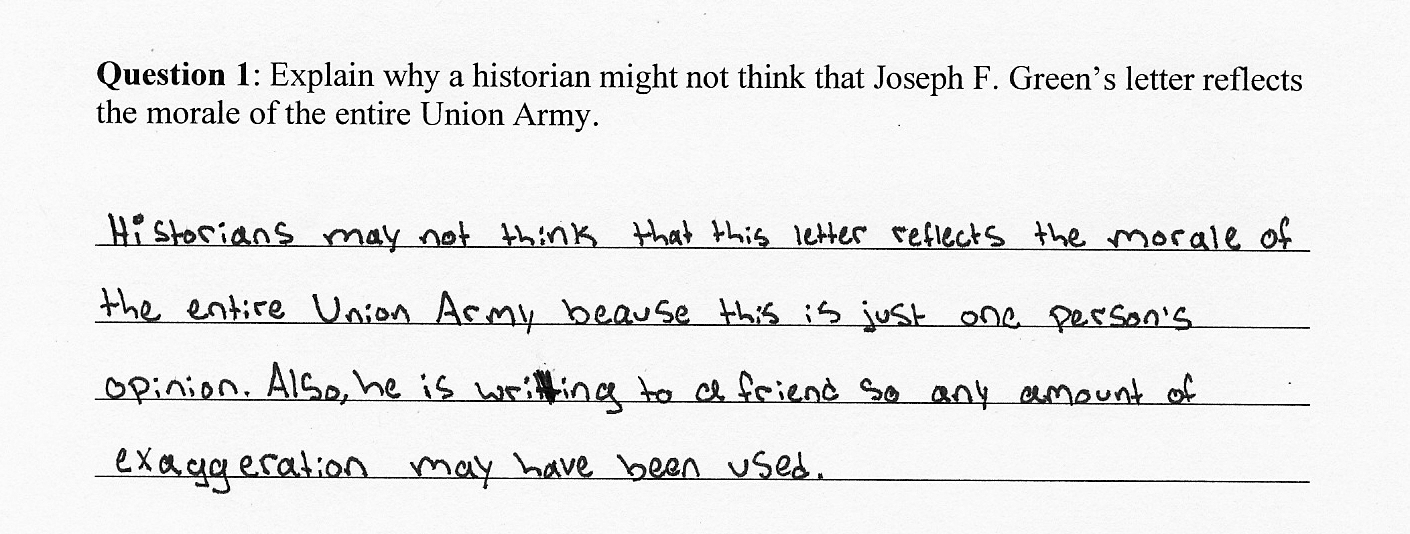 Question 1: Explain why a historian might not think that Joseph F. Green’s letter reflects
the morale of the entire Union Army.
Historians may not think that this letter reflects the morale of
the entire Union Army beause this is just one person's
opinion. Also, he is writting to a friend so any amount of
exaggeration may have been used.